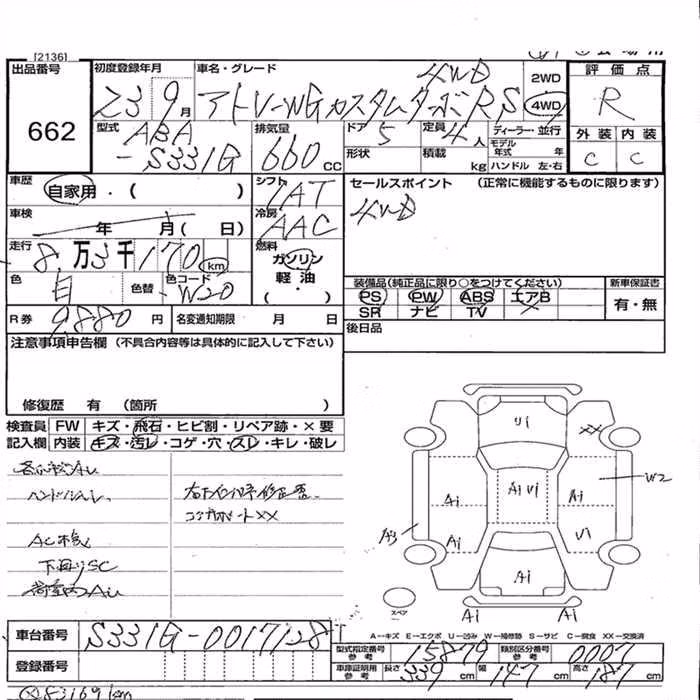 [2136]
出品番号 初度登録年月 車名・グレード 4WD 2WD 評価点
662 23 9月 アトレーWGカスタムターボRS 4WD R
型式 ABA-S331G 排気量 660cc ドア 5 定員 4人 ディーラー・並行 外装 内装
形状 積載 kg モデル年式 年 ハンドル 左・右 C C
車歴 自家用・( ) シフト IAT セールスポイント (正常に機能するものに限ります)
車検 年 月( 日) 冷房 AAC 4WD
走行 8万3千170km 燃料 ガソリン
色 白 色替 色コード W20 軽油 装備品(純正品に限り○をつけてください) 新車保証書
( ・ ) PS PW ABS エアB 有・無
R券 9,880円 名変通知期限 月 日 SR ナビ TV
注意事項申告欄 (不具合内容等は具体的に記入して下さい) 後日品
修復歴 有 (箇所 )
検査員 FW キズ・飛石・ヒビ割・リペア跡・×要
記入欄 内装 キズ・汚レ・コゲ・穴・スレ・キレ・破レ
ハンドルAレ
コアサポートXX
下廻りSC
荷室内AU
Ui
XX
W2
Ai
AiUi
Ai
A3
Ai
Ui
Ai
スペア
Ai Ai
A−キズ E−エクボ U−凹み W−補修跡 S−サビ C−腐食 XX−交換済
車台番号 S331G-0017128
型式指定番号 参考 15879 類別区分番号 参考 0007
登録番号 車庫証明用 参考 長さ 339cm 幅 147cm 高さ 187cm
83169km